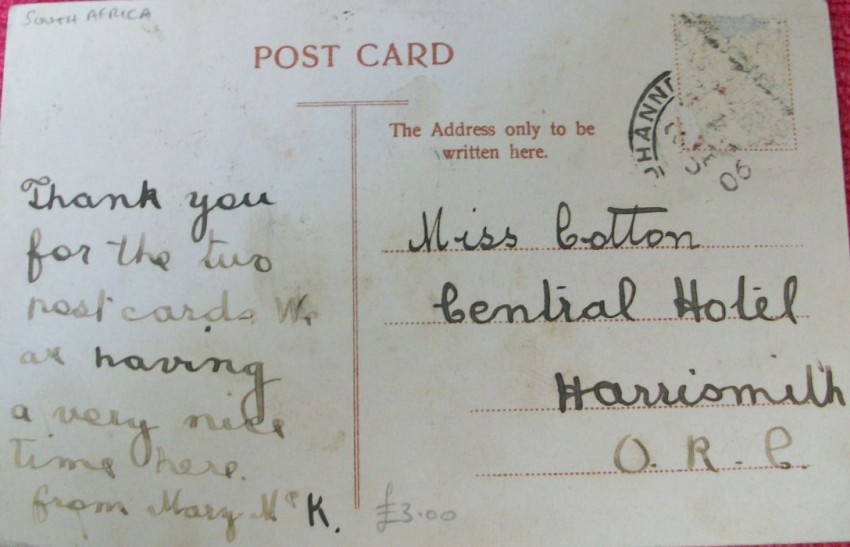 SOUTH AFRICA
POST CARD
The Address only to be
written here.
HANN
05
Thank you
for the two
post cards We
are having
a very nice
time here.
from Mary McK.
Miss Cotton
Central Hotel
Harrismith
O. R. C.
£3.00